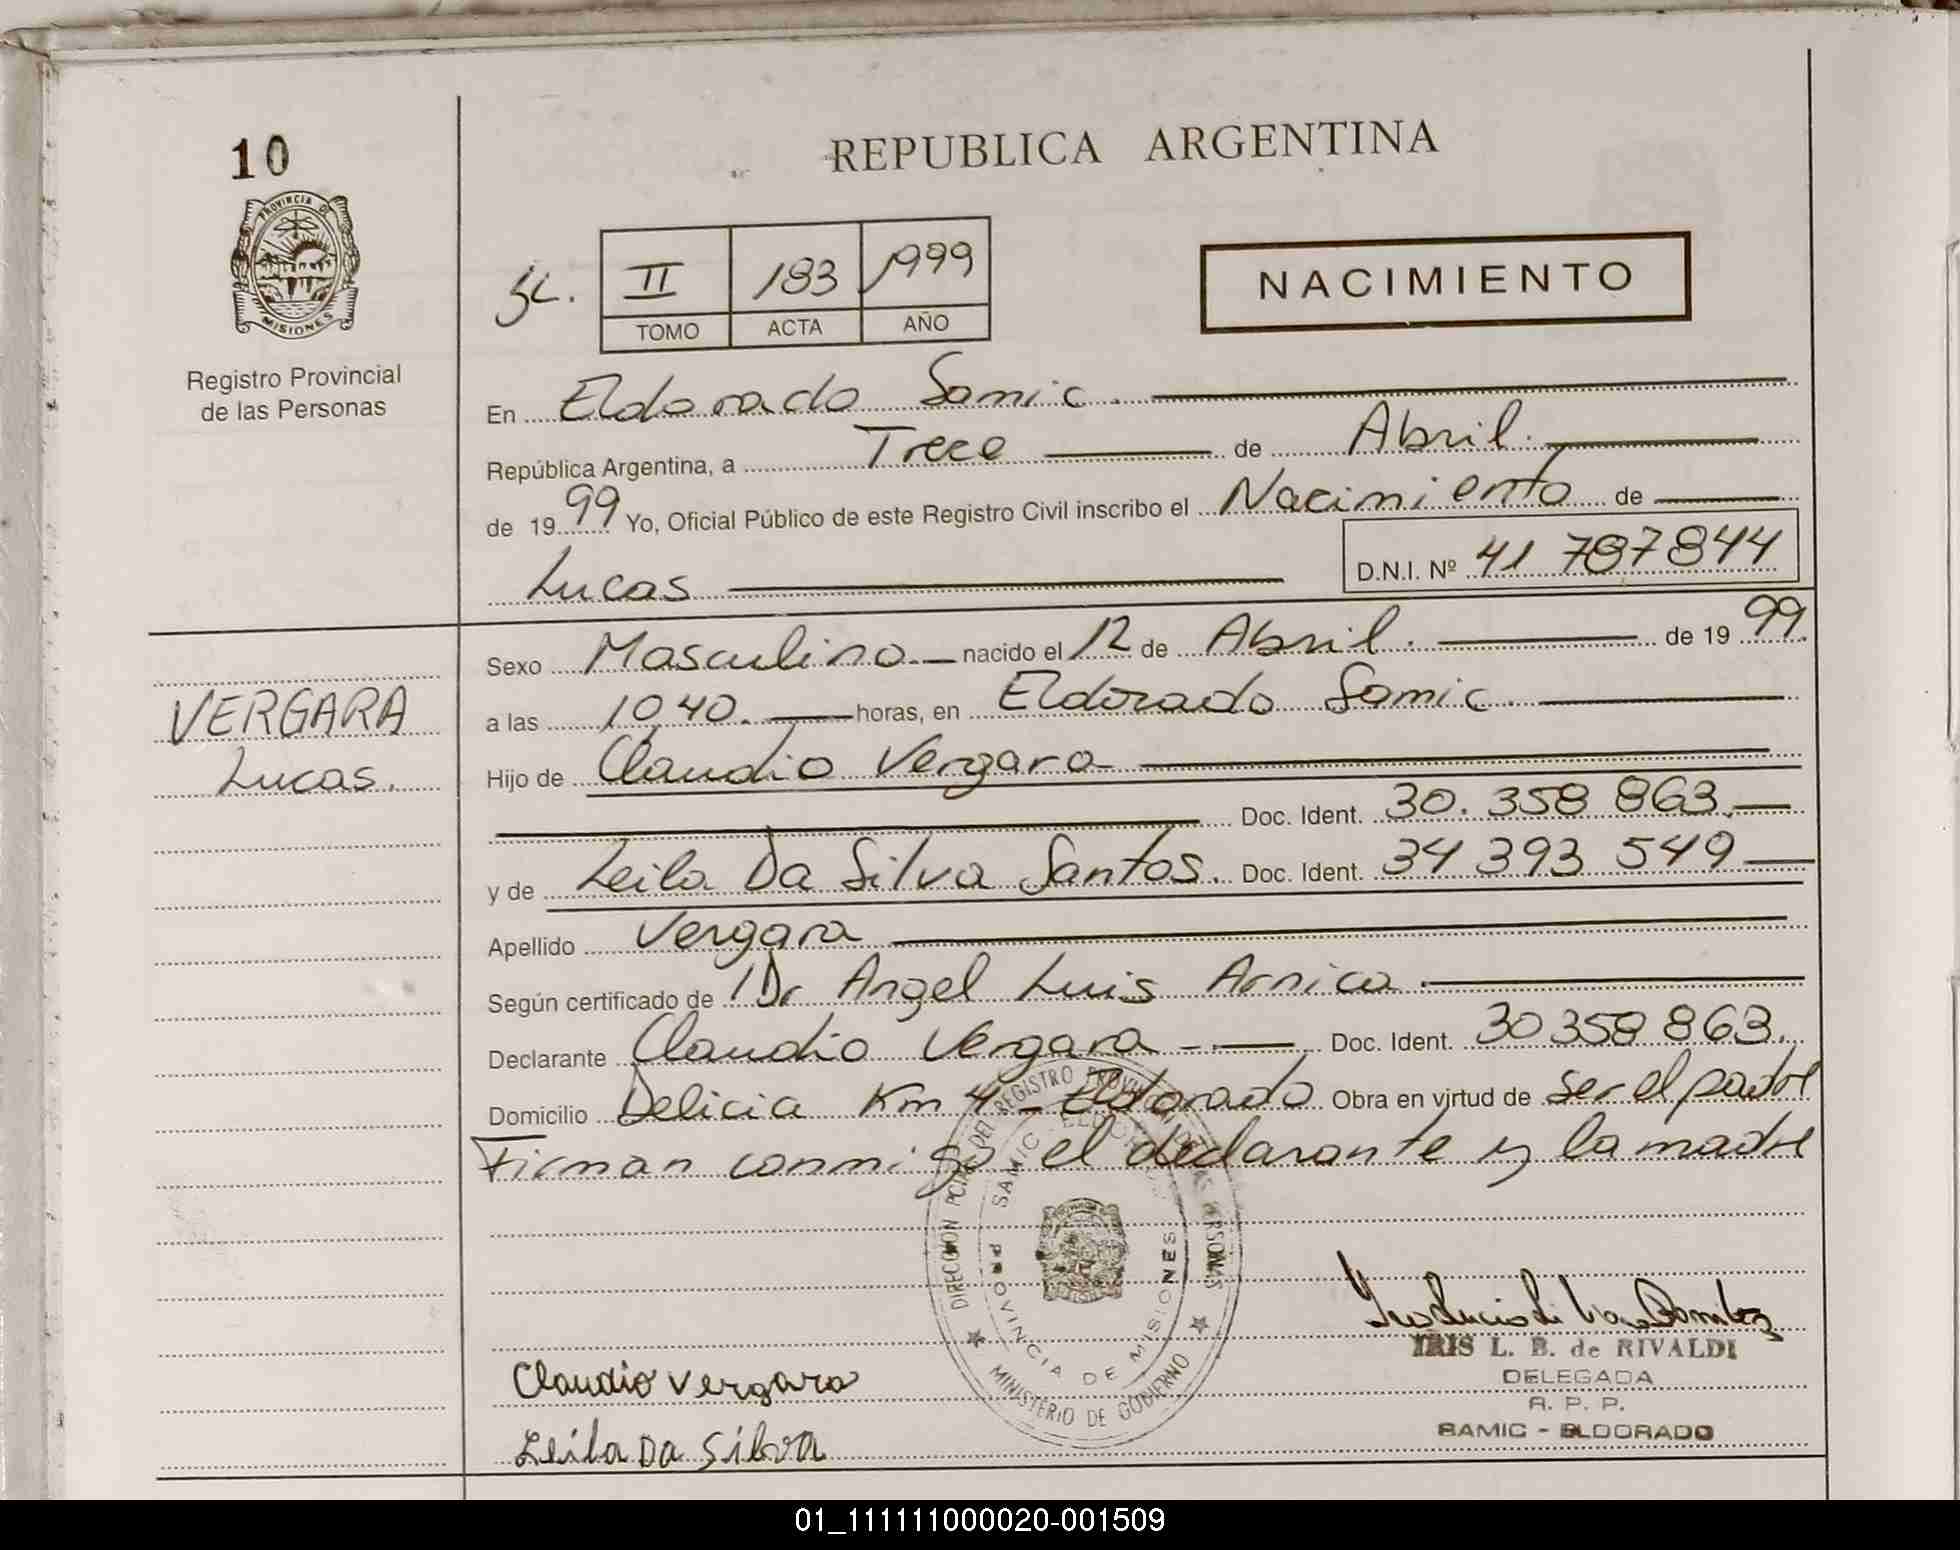 10
REPUBLICA ARGENTINA
PROVINCIA DE
MISIONES
Registro Provincial
de las Personas
II 183 1999
TOMO ACTA AÑO
NACIMIENTO
En Eldorado Samic.
República Argentina, a Trece de Abril.
de 1999 Yo, Oficial Público de este Registro Civil inscribo el Nacimiento de
Lucas
D.N.I. Nº 41 787844
VERGARA
Lucas.
Sexo Masculino. nacido el 12 de Abril. de 1999.
a las 10,40. horas, en Eldorado Samic.
Hijo de Claudio Vergara
Doc. Ident. 30.358 863.
y de Leila Da Silva Santos. Doc. Ident. 34 393 549
Apellido Vergara
Según certificado de Dr Angel Luis Arnica.
Declarante Claudio Vergara Doc. Ident. 30358 863.
Domicilio Delicia Km 4 - Eldorado Obra en virtud de ser el padre
Firman conmigo el declarante y la madre
DIRECCION PCIAL DEL REGISTRO PROVINCIAL DE LAS PERSONAS
SAMIC ELDORADO
PROVINCIA DE MISIONES
MINISTERIO DE GOBIERNO
IRIS L. B. de RIVALDI
DELEGADA
R. P. P.
SAMIC - ELDORADO
Claudio Vergara
Leila Da Silva
01_111111000020-001509